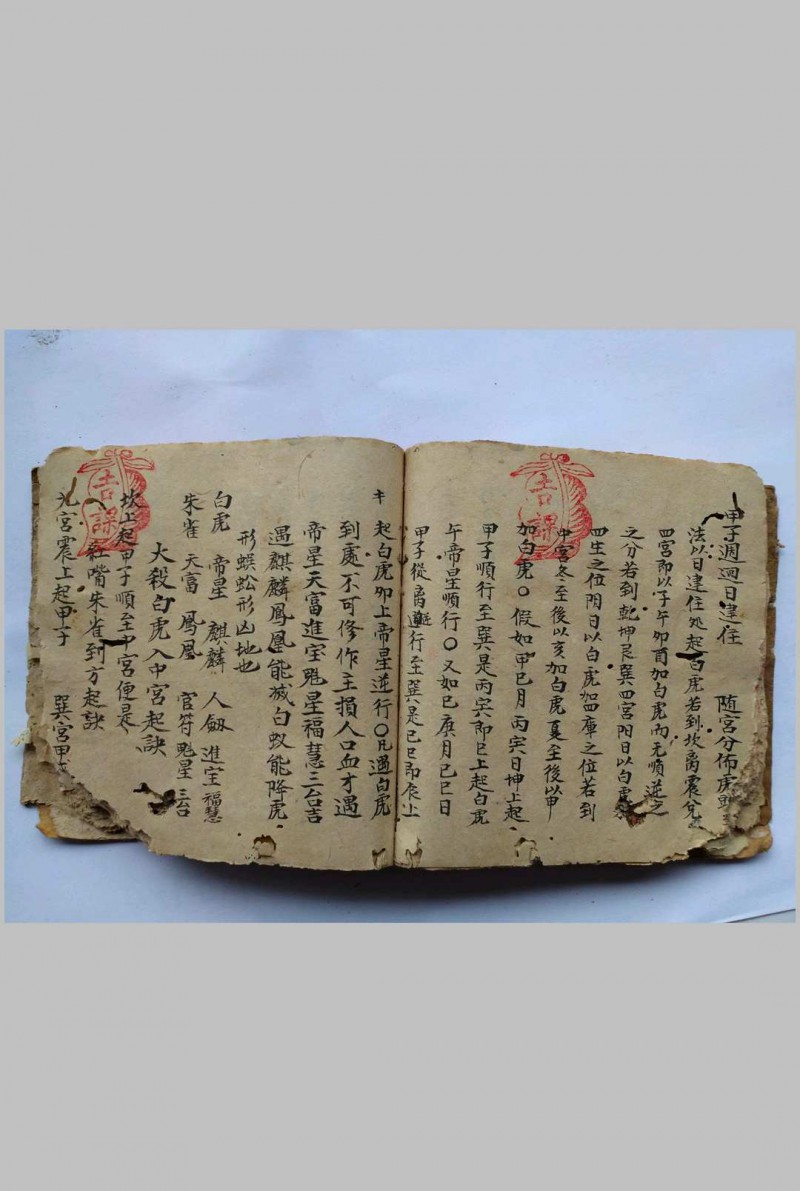 甲子週廻日建住 随宮分佈虎
法以日建住处起白虎若到坎离震兌
四宮即以子午卯酉加白虎內无順逆之
之分若到乾坤艮巽四宮陽日以白虎
四生之位阴日以白虎加四庫之位若到
中宮冬至後以亥加白虎夏至後以申
加白虎〇假如甲巳月丙寅日坤上起
甲子順行至巽是丙寅即巳上起白虎
午帝星順行〇又如巳庚月己巳日
甲子從离逆行至巽是己巳即辰上
起白虎卯上帝星逆行〇凡遇白虎
到處不可修作主損人口血才遇
帝星天富進宝魁星福慧三台吉
遇麒麟鳳凰能滅白蚁能降虎
形蜈蚣形凶地也
白虎 帝星 麒麟 人劔 進宝 福慧
朱雀 天富 鳳凰 官符 魁星 三台
大殺白虎入中宮起訣
坎上起甲子順至中宮便是
紅嘴朱雀到方起訣
九宮震上起甲子 巽宮甲
吉課
吉課